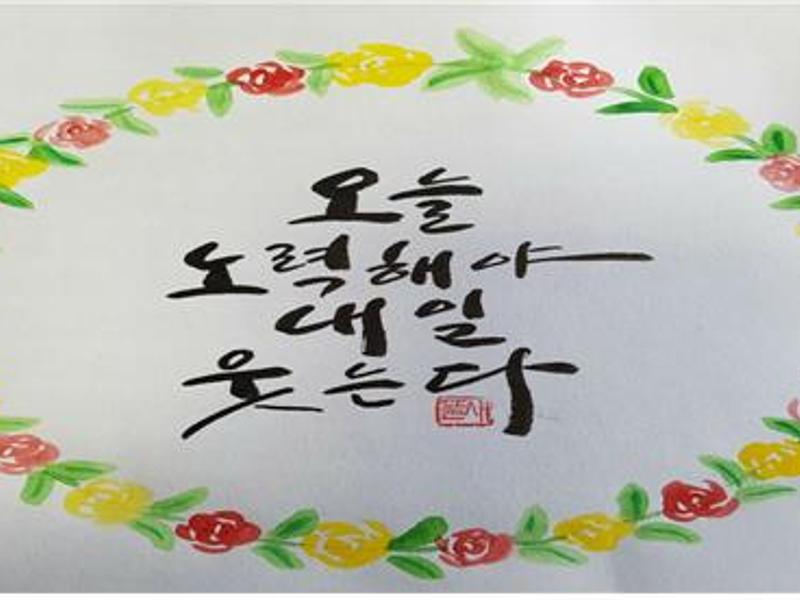 오늘
노력해야
내일
웃는다